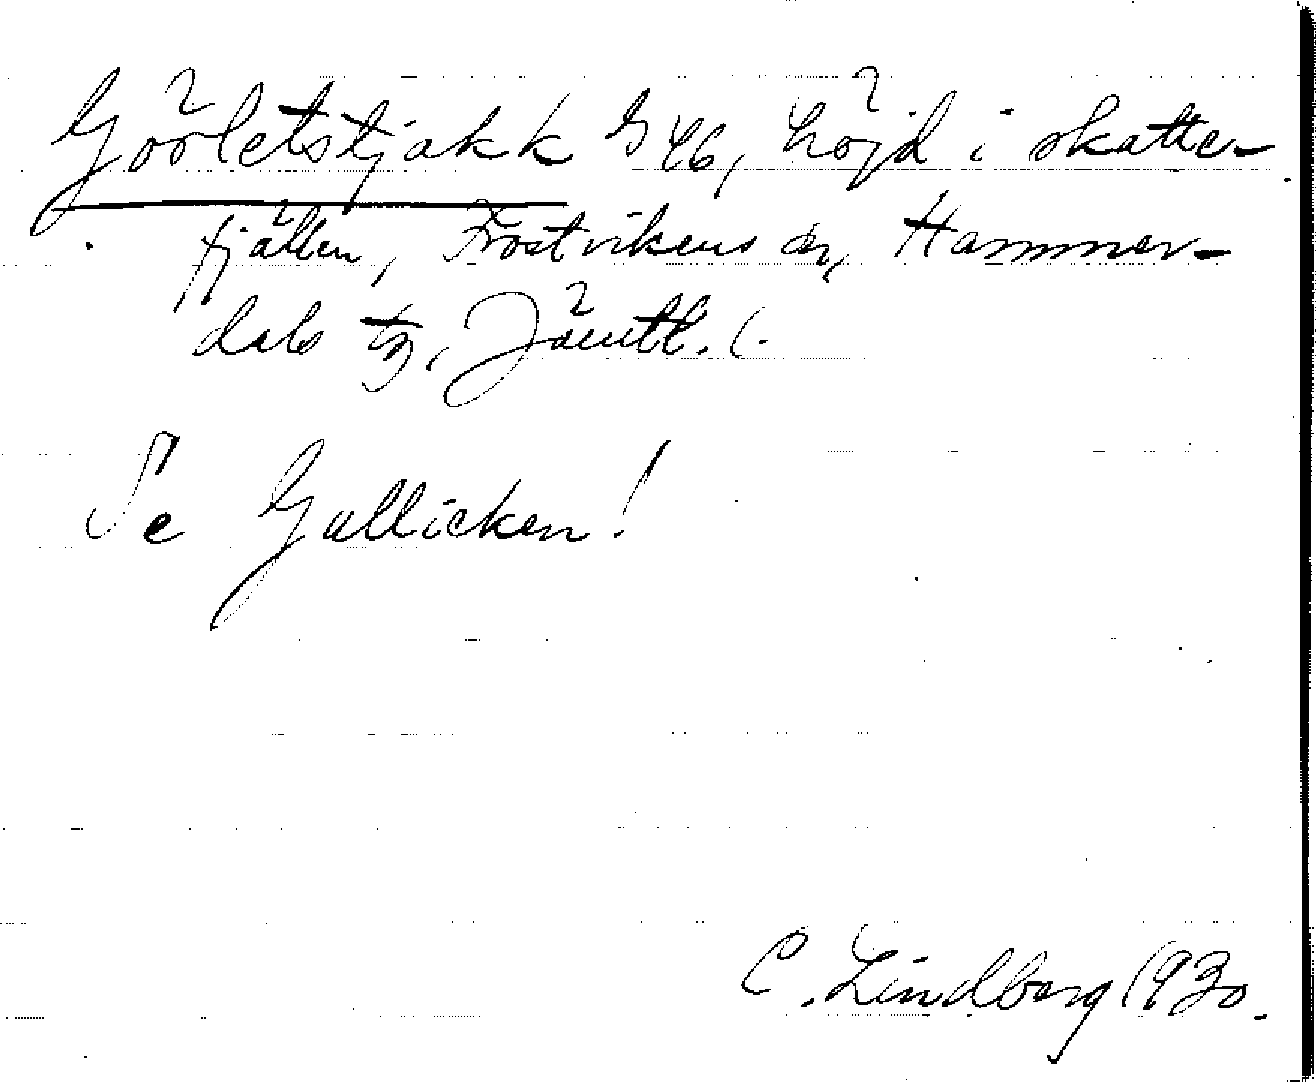 Göörletstjakk G 46, höjd i skatte-
fjällen, Frostvikens sn, Hammer-
dals tg, Jämtl. l.
Se Gallicken!
C. Lindberg 1930.